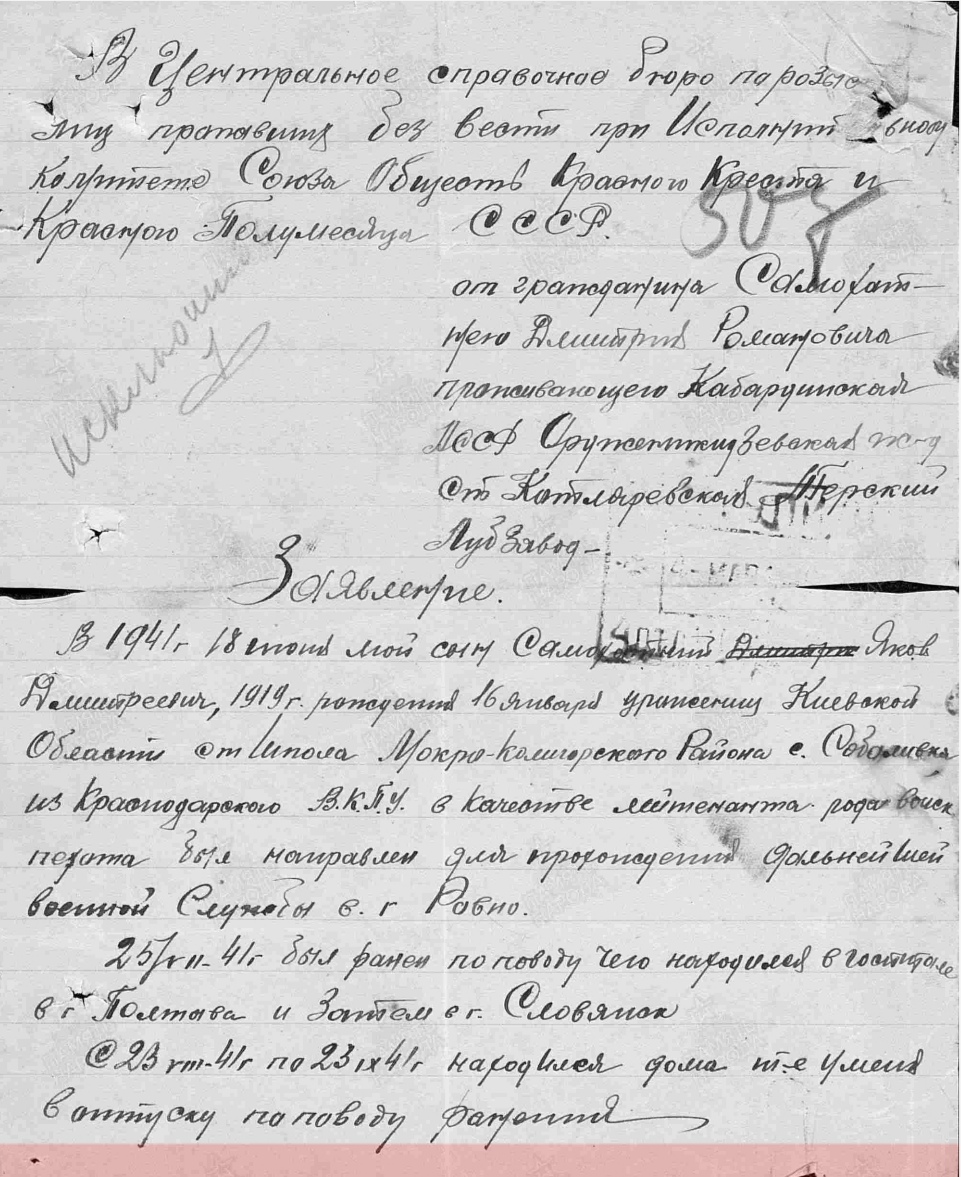 В Центральное справочное бюро па розыс
лиц пропавших без вести при Исполнит льному
комитете Союза Обществ Красного Креста и
Красного Полумесяца СССР.
307
от гражданина Самохат-
нею Дмитрия Романовича
проживающего Кабардинская
АССР Оружениткидзевская ж-д
Ст Катляревская Терский
Луб Завод-
Заявление.
В 1941г 18 июня мой сын Самохатний Дмитри Яков
Дмитреевич, 1919 г. рождения 16 января уроженец Киевской
Области ст Шпола Мокро-Калигорского Района с. Соболивка
из Краснодарского В.К.П.У. в качестве лейтенанта рода войск
пехота был направлен для прохождения дальнейшей
военной Службы в. г Равно.
25/VII-41г был ранен по поводу чего находился в госпитале
в г Полтава и Затем в г. Словянск
С 23 VIII-41г по 23 IX 41г находился дома т-е у меня
в отпуску по поводу ранения